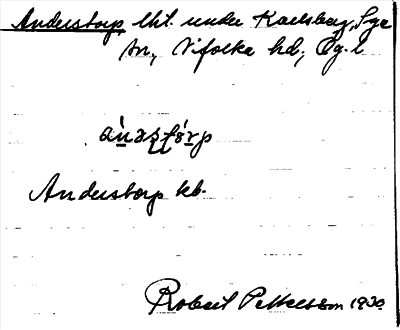 Anderstorp lht. under Karlsberg, Sya
sn, Vifolka hd, Ög. l.
Anderstorp kb.
Robert Pettersson 1930.